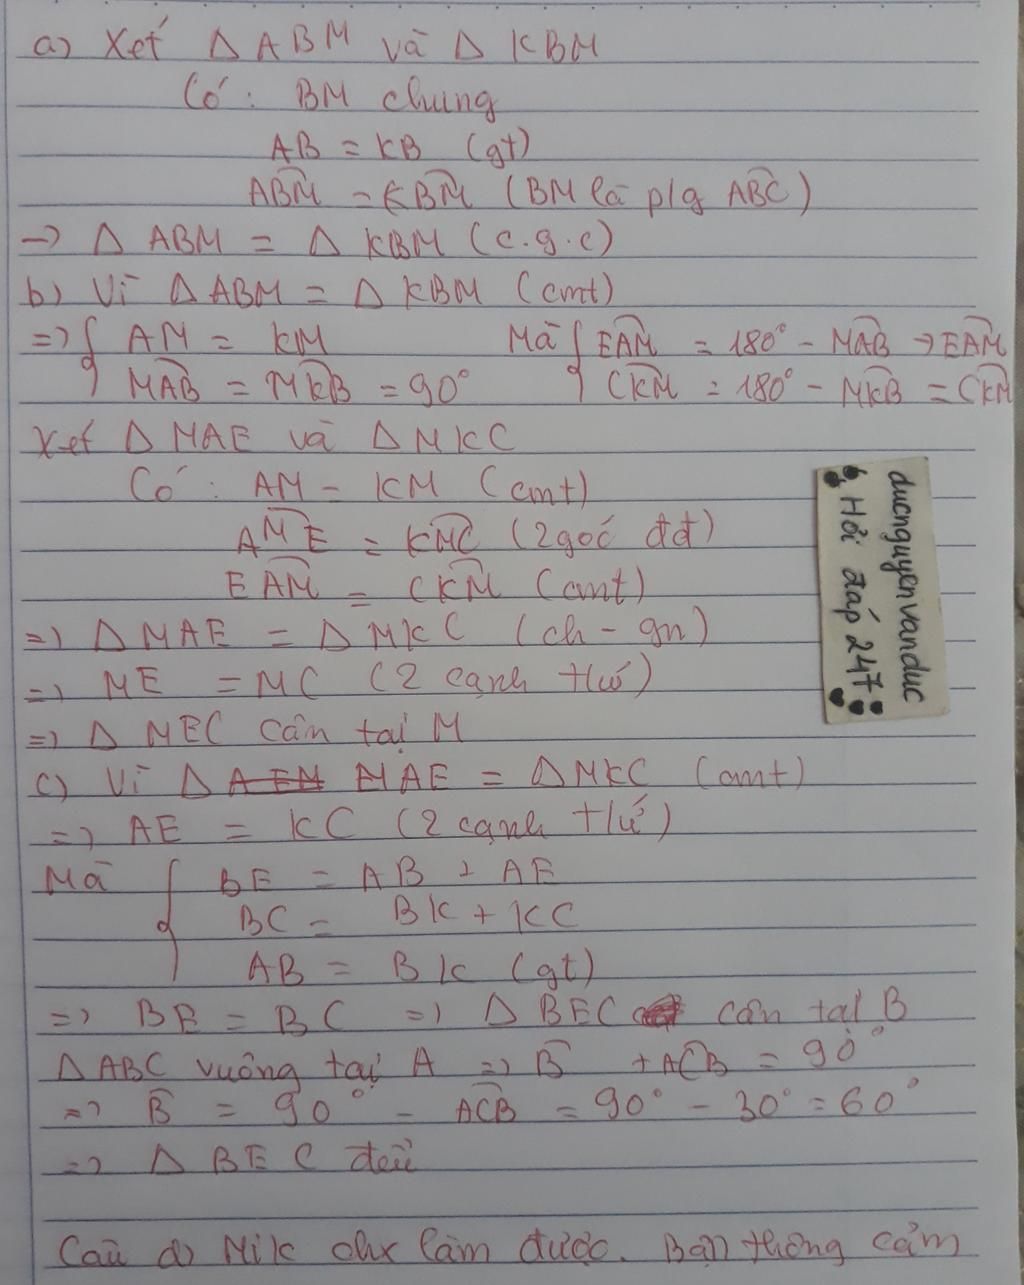 a) Xét Δ ABM và Δ KBM
Có: BM chung
AB = KB (gt)
ABM = KBM (BM là p/g ABC)
-> Δ ABM = Δ KBM (c.g.c)
b) Vì Δ ABM = Δ KBM (cmt)
=> { AM = KM
MAB = MKB = 90°
Mà { EAM = 180° - MAB -> EAM
CKM = 180° - MKB = CKM
Xét Δ MAE và Δ MKC
Có: AM = KM (cmt)
AME = KMC (2 góc đđ)
EAM = CKM (cmt)
=> Δ MAE = Δ MKC (ch - gn)
=> ME = MC (2 cạnh t/ứ)
=> Δ MEC cân tại M
c) Vì Δ MAE = Δ MKC (cmt)
=> AE = KC (2 cạnh t/ứ)
Mà { BE = AB + AE
BC = BK + KC
AB = BK (gt)
=> BE = BC => Δ BEC cân tại B
Δ ABC vuông tại A => B + ACB = 90°
=> B = 90° - ACB = 90° - 30° = 60°
=> Δ BEC đều
Câu d) Mik chx làm được. Bạn thông cảm
ducnguyenvanduc
Hỏi đáp 247